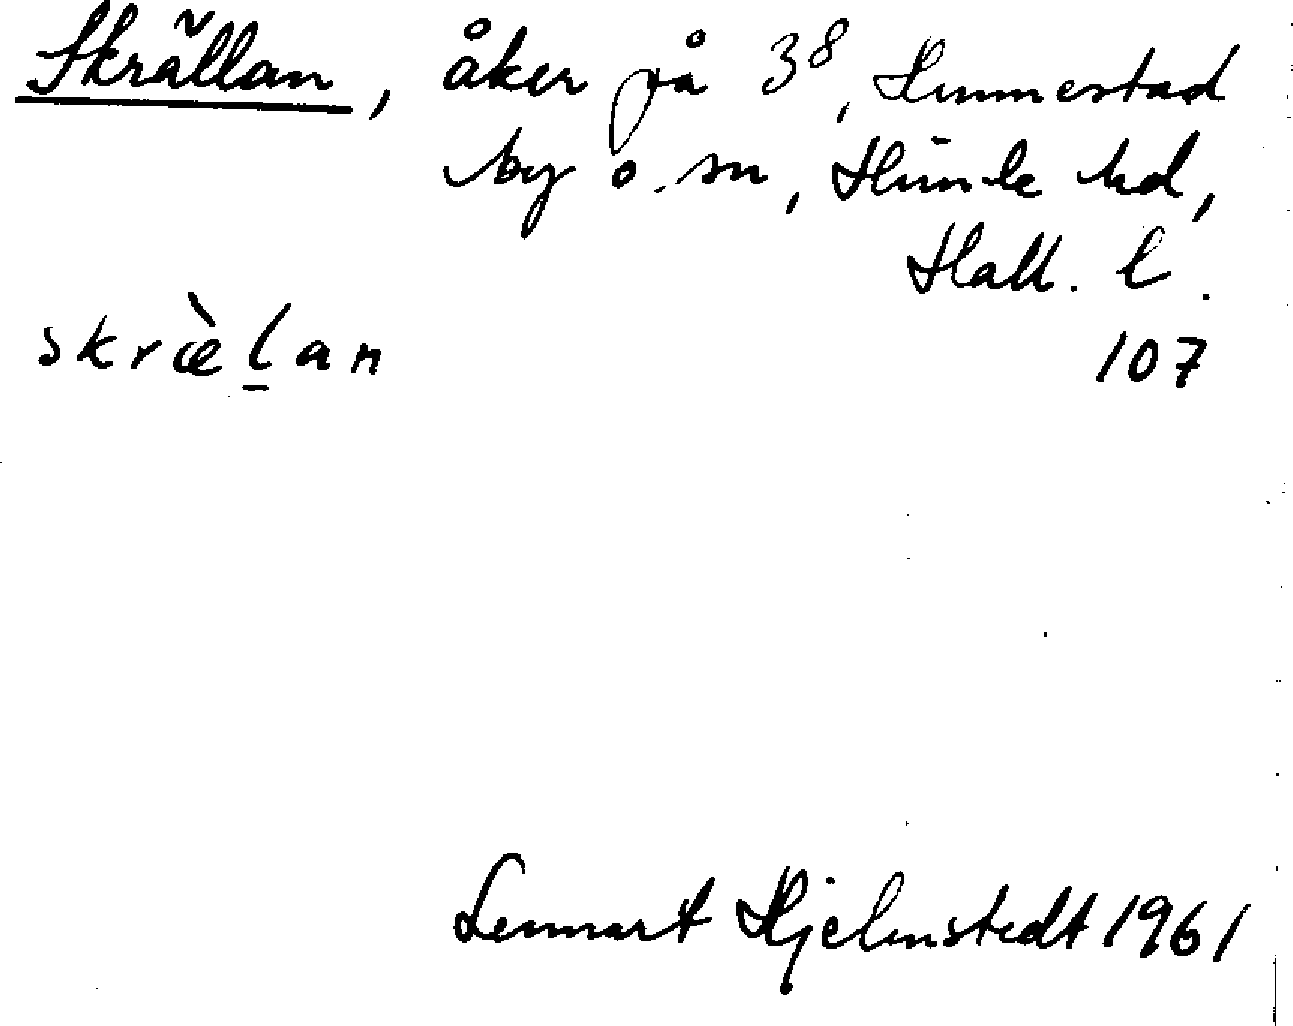 Skrällan, åker på 3⁸, Hunnestad
by o. sn, Himle hd,
Hall. l.
skræ̀l̲an
107
Lennart Hjelmstedt 1961